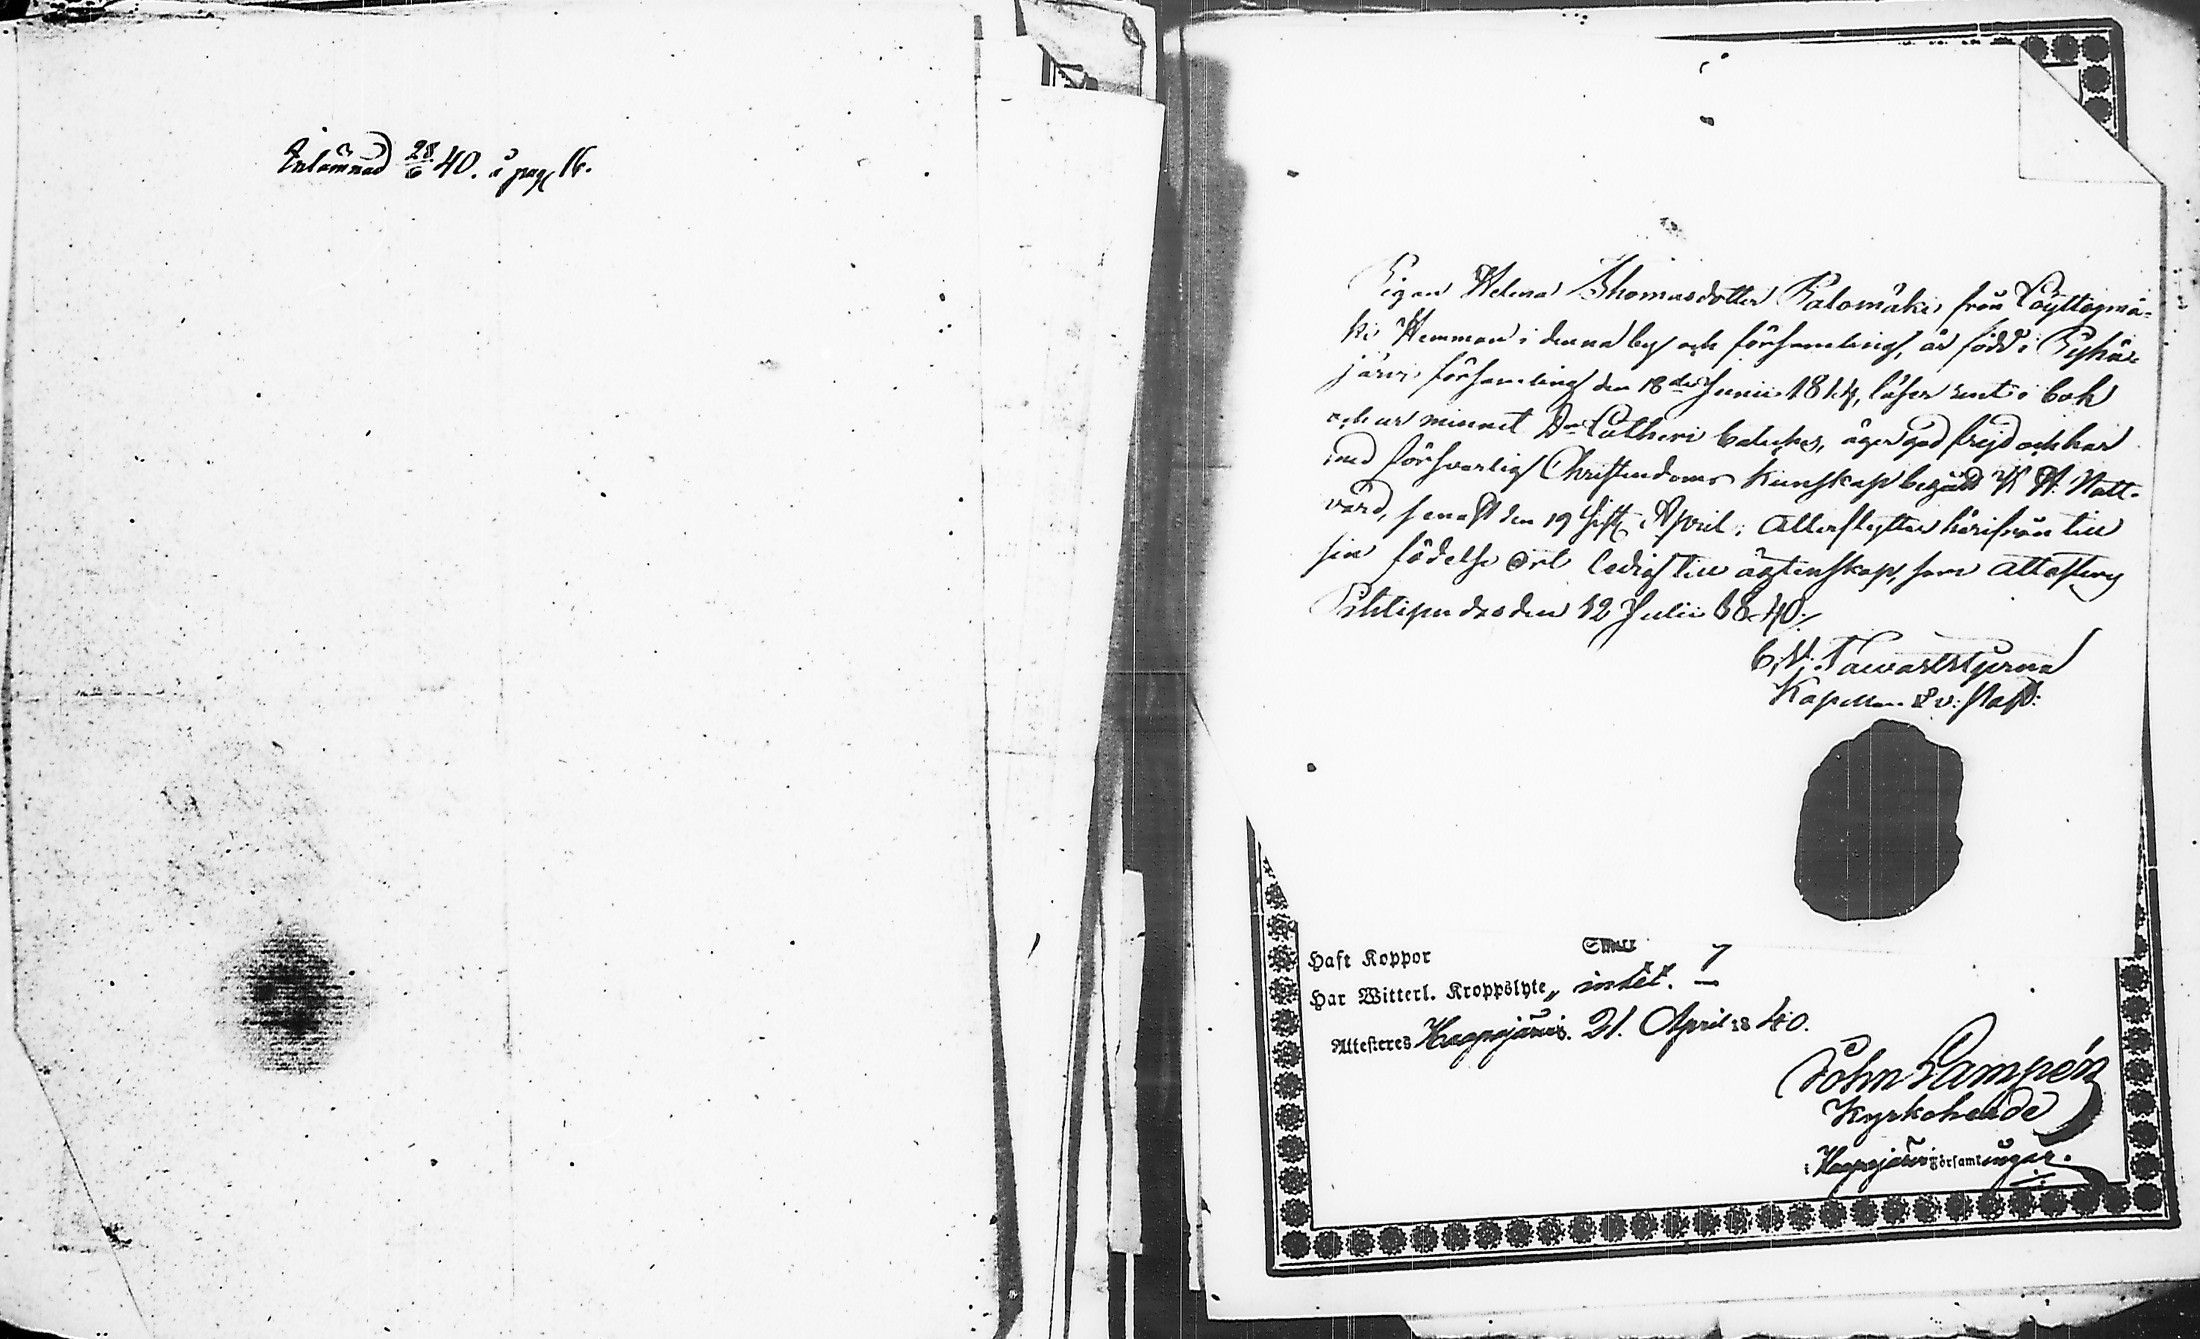 Inlämnad 28/6 40. å pag. 16.
Pigan Helena Thomasdotter Salomäki från Löyttysmä-
ki Hemman i denna by och församling, är född i Pyhä-
järvi församling den 18de Junii 1814, läser rent i bok
och ur minnet Dr Lutheri Cateches, äger god frejd och har
med försvarlig Christendoms kunskap begådt H. H. Natt-
vard, senast den 19 sistl. April; Allerflyttar härifrån till
sin födelse ort ledig till ägtenskap, som attesterar
Pihtipudas den 12 Julii 1840./.
C. W. Tawaststjerna
Kapellan & v. Past.
Haft Koppor
Har Witterl. Kroppslyte „ intet. —
Attesteres Haapajärvi. 21. April 1840.
John Lampén
Kyrkoherde
i Haapajärvi Församlingar.